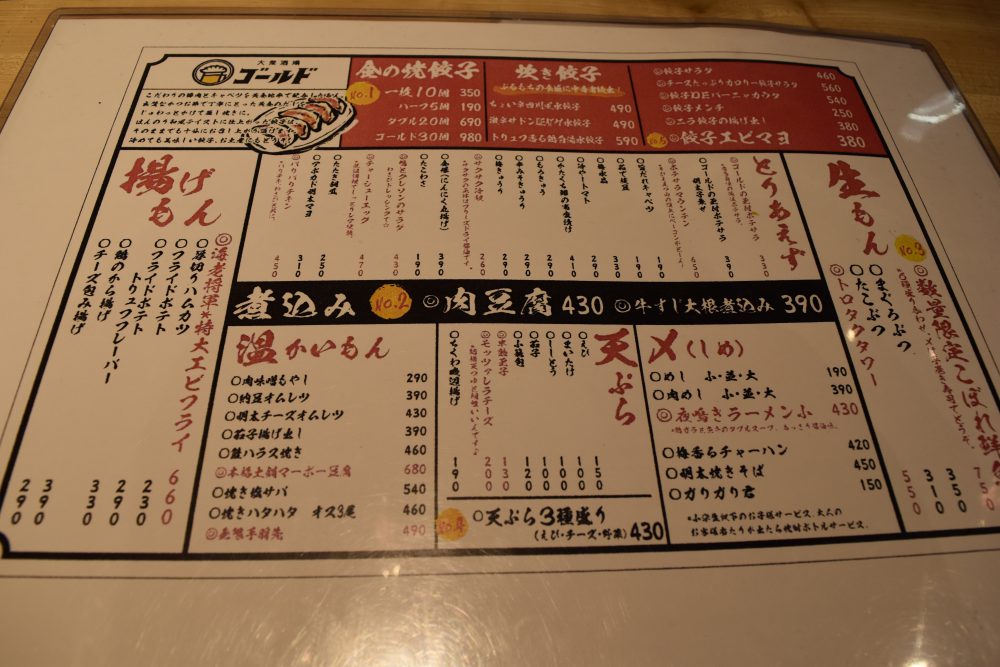 大衆酒場
ゴールド
No.1
金の焼餃子
一枚10個 350
ハーフ5個 190
ダブル20個 690
ゴールド30個 980
炊き餃子
ちょい辛四川風水餃子 490
激辛サドンデスゲザ水餃子 490
トリュフ香る鶏白湯水餃子 590
◎餃子サラダ 460
◎チーズたっぷりカロリー餃子サラダ 560
540
◎餃子メンチ 250
◎ニラ餃子の揚げ出し 380
No.5 ◎餃子エビマヨ 380
生もん
No.3
◎数量限定こぼれ
●まぐろぶつ
●たこぶつ
◎トロタクタワー
750
310
350
550
とりあえず
◎ゴールドの具材ポテサラ 330
○ゴールドの具材ポテサラ明太子乗せ 390
◎ポテサラマウンテン 650
○塩だれキャベツ 190
○茹で枝豆 330
○梅水晶 290
○冷やしトマト 290
○もろきゅう 290
○辛みそきゅうり 290
○梅きゅうり 290
◎サクサク冷奴 260
○たこわさ 190
◎鴨とクレソンのサラダ 430
◎チャーシューエッグ 470
○アボカド明太マヨ 250
○たたき胡瓜 310
◎バリバリチキン 450
揚げもん
◎海老将軍★特大エビフライ 660
○厚切りハムカツ 230
○フライドポテト 290
○フライドポテト トリュフフレーバー 330
○鶏のから揚げ 390
○チーズ包み揚げ 290
煮込み No.2 ◎肉豆腐 430 ◎牛すじ大根煮込み 390
温かいもん
○肉味噌もやし 290
○納豆オムレツ 390
○明太チーズオムレツ 430
○茄子揚げ出し 390
○鮭ハラス焼き 460
◎本格土鍋マーボー豆腐 680
○焼き塩サバ 540
○焼きハタハタ オス3尾 460
◎無限手羽先 490
天ぷら
○えび 150
○まいたけ 100
○ししとう 100
○茄子 100
◎半熟玉子 130
◎モッツァレラチーズ 200
○ちくわ磯辺揚げ 190
No.4 ○天ぷら3種盛り
(えび・チーズ・野菜) 430
〆(しめ)
○めし 小・並・大 190
○肉めし 小・並・大 390
◎夜鳴きラーメン小 430
○梅香るチャーハン 420
○明太焼きそば 450
○ガリガリ君 150